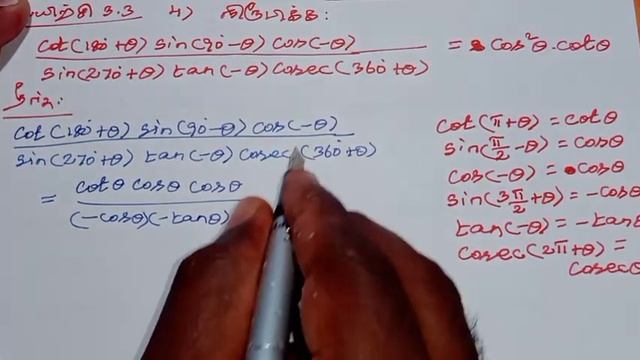 பயிற்சி 3.3 4) நிரூபிக்க:
cot(180°+θ) sin(90°-θ) cos(-θ)
sin(270°+θ) tan(-θ) cosec(360°+θ) = cos²θ.cotθ
தீர்வு:
cot(180°+θ) sin(90°-θ) cos(-θ)
sin(270°+θ) tan(-θ) cosec(360°+θ)
= cotθ cosθ cosθ
(-cosθ)(-tanθ)
cot(π+θ) = cotθ
sin(π/2-θ) = cosθ
cos(-θ) = cosθ
sin(3π/2+θ) = -cosθ
tan(-θ) = -tanθ
cosec(2π+θ) =
cosecθ